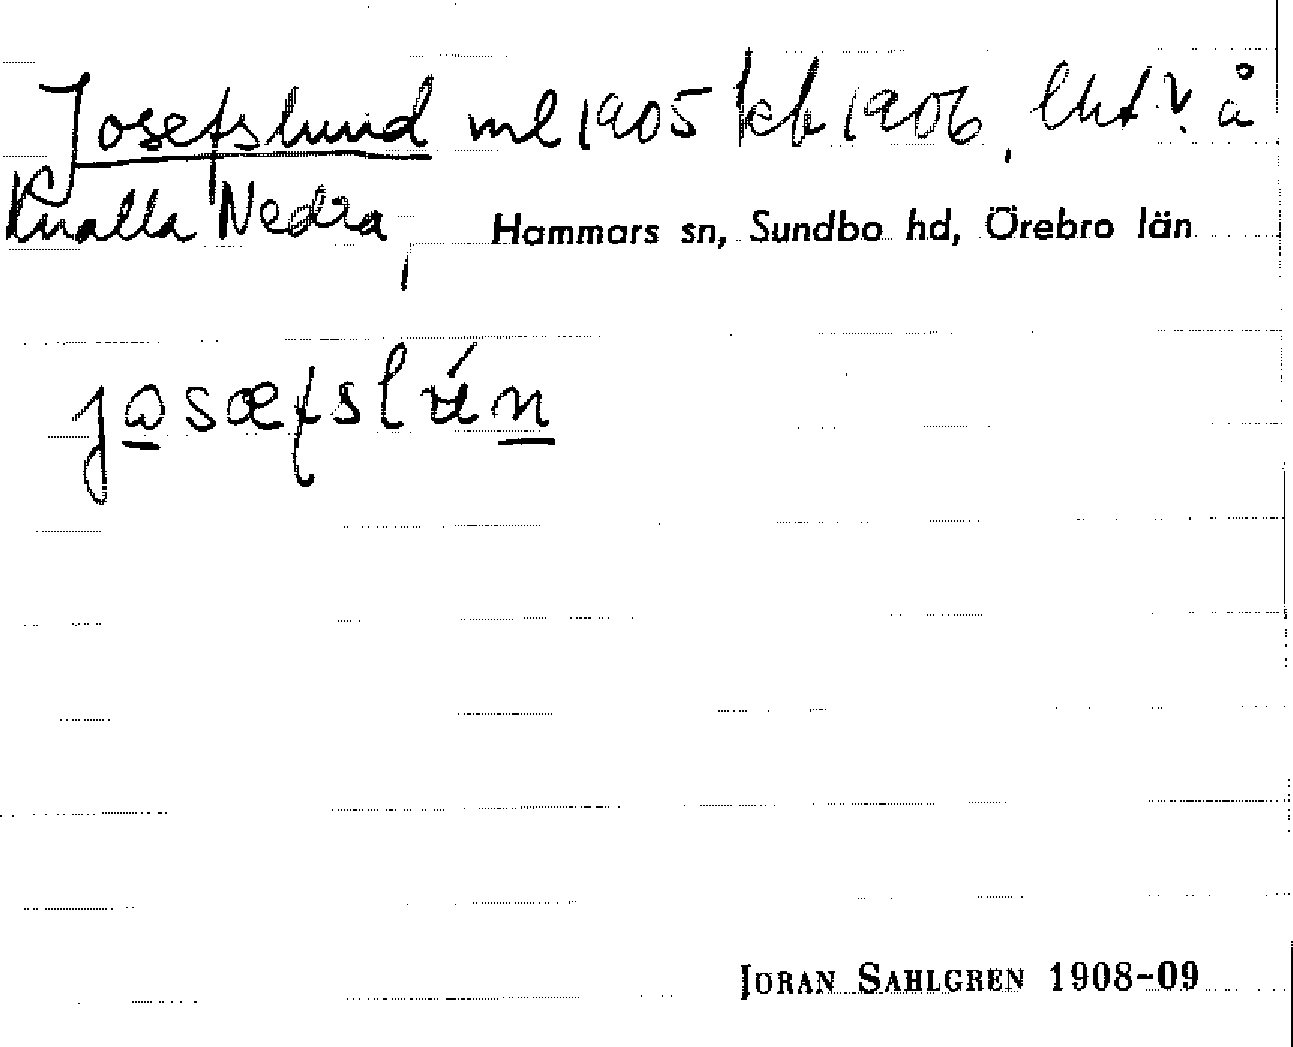 Josefslund ml 1905 kb 1906, lht v. å
Knalla Nedra, Hammars sn, Sundbo hd, Örebro län
josæfslún
JÖRAN SAHLGREN 1908-09